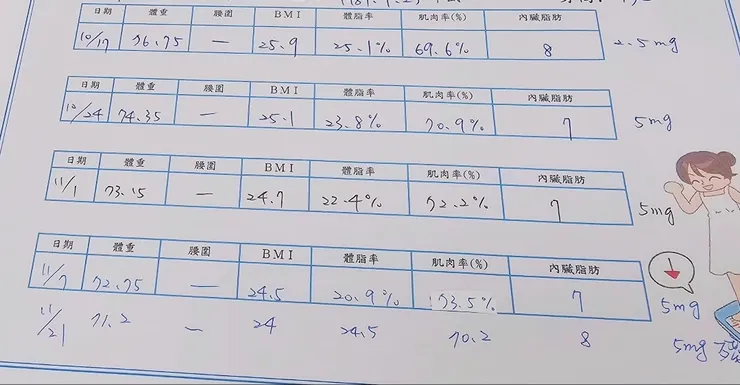 日期 體重 腰圍 BMI 體脂率 肌肉率(%) 內臟脂肪
10/17 76.75 — 25.9 25.1% 69.6% 8 2.5mg
日期 體重 腰圍 BMI 體脂率 肌肉率(%) 內臟脂肪
10/24 74.35 — 25.1 23.8% 70.9% 7 5mg
日期 體重 腰圍 BMI 體脂率 肌肉率(%) 內臟脂肪
11/1 73.15 — 24.7 22.4% 72.2% 7 5mg
日期 體重 腰圍 BMI 體脂率 肌肉率(%) 內臟脂肪
11/7 72.75 — 24.5 20.9% 73.5% 7 5mg
11/21 71.2 — 24 24.5 70.2 8 5mg